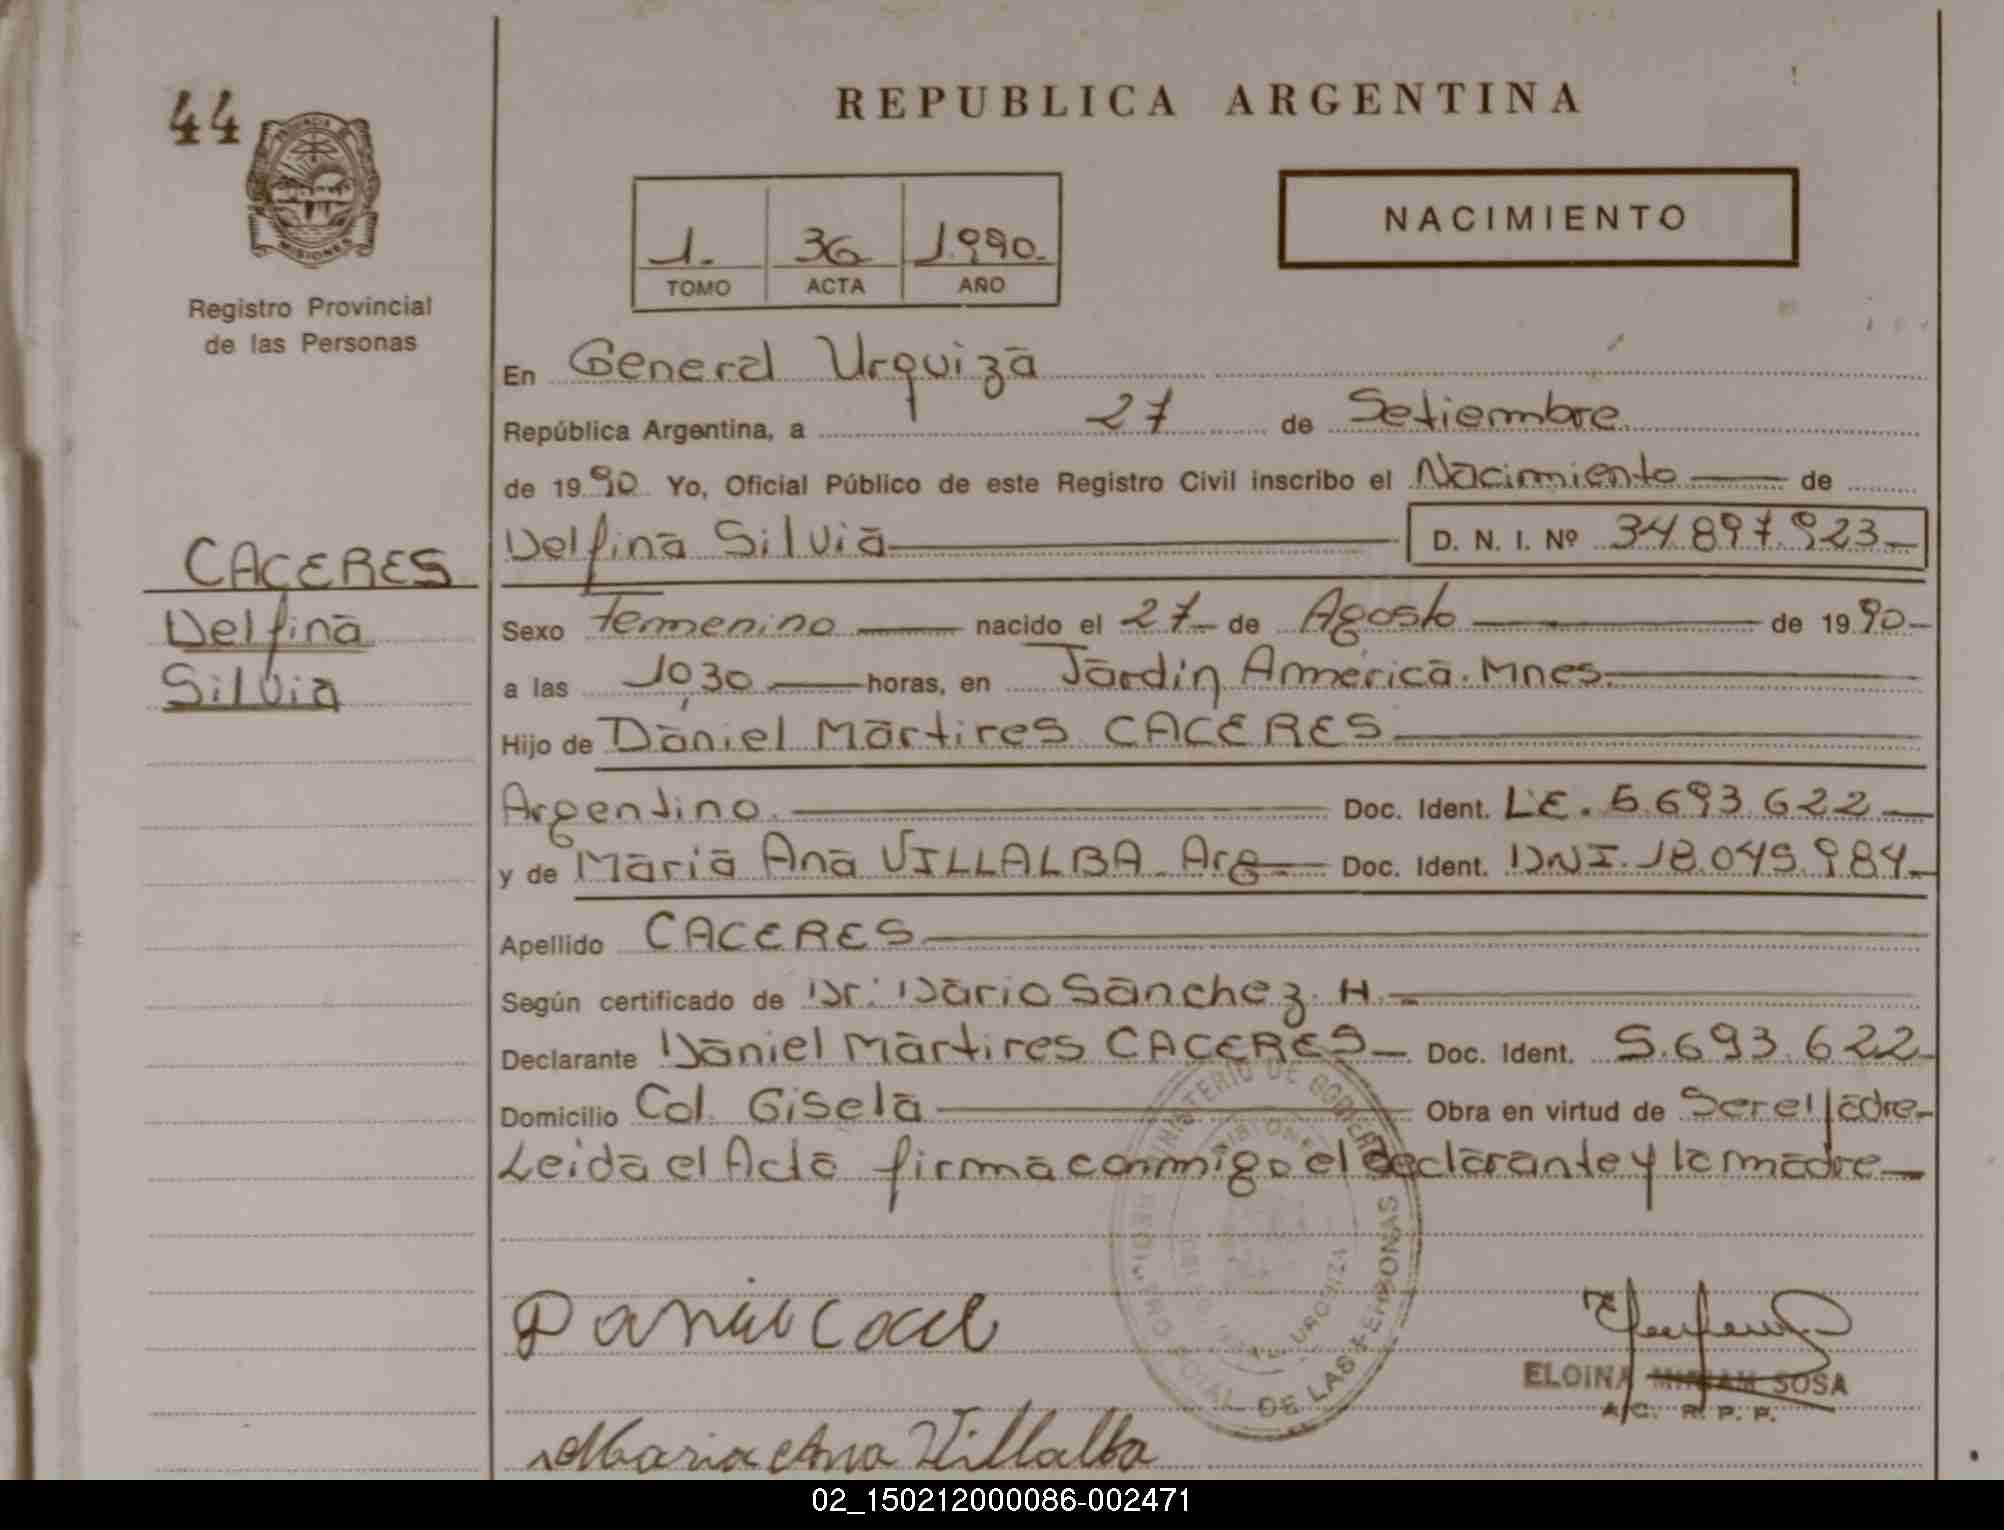 44
REPUBLICA ARGENTINA
PROVINCIA DE
MISIONES
Registro Provincial
de las Personas
1. 36 1.990.
TOMO ACTA AÑO
NACIMIENTO
En General Urquiza
República Argentina, a 27 de Setiembre
de 1990 Yo, Oficial Público de este Registro Civil inscribo el Nacimiento de
Delfina Silvia D. N. I. Nº 34.897.923
CACERES
Delfina
Silvia
Sexo Femenino nacido el 27 de Agosto de 1990
a las 10,30 horas, en Jardín América. Mnes.
Hijo de Daniel Martires CACERES
Argentino. Doc. Ident. L.E. 5.693.622
y de Maria Ana VILLALBA Arg Doc. Ident. DNI. 18.045.984
Apellido CACERES
Según certificado de Dr: Dario Sanchez. H.
Declarante Daniel Martires CACERES Doc. Ident. 5.693.622
Domicilio Col. Gisela Obra en virtud de Ser el padre
Leida el Acta firma conmigo el declarante y la madre
MINISTERIO DE GOBIERNO
MISIONES
DE LAS PERSONAS
URQUIZA
ELOINA MIRIAM SOSA
A/C. R. P. P.
Maria Ana Villalba
02_150212000086-002471